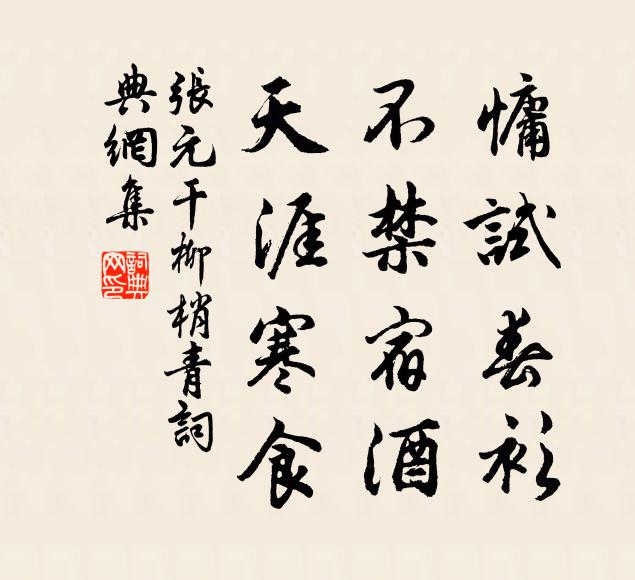 慵試春衫
不禁宿酒
天涯寒食
張元干柳梢青詞
典網集
詞典網印